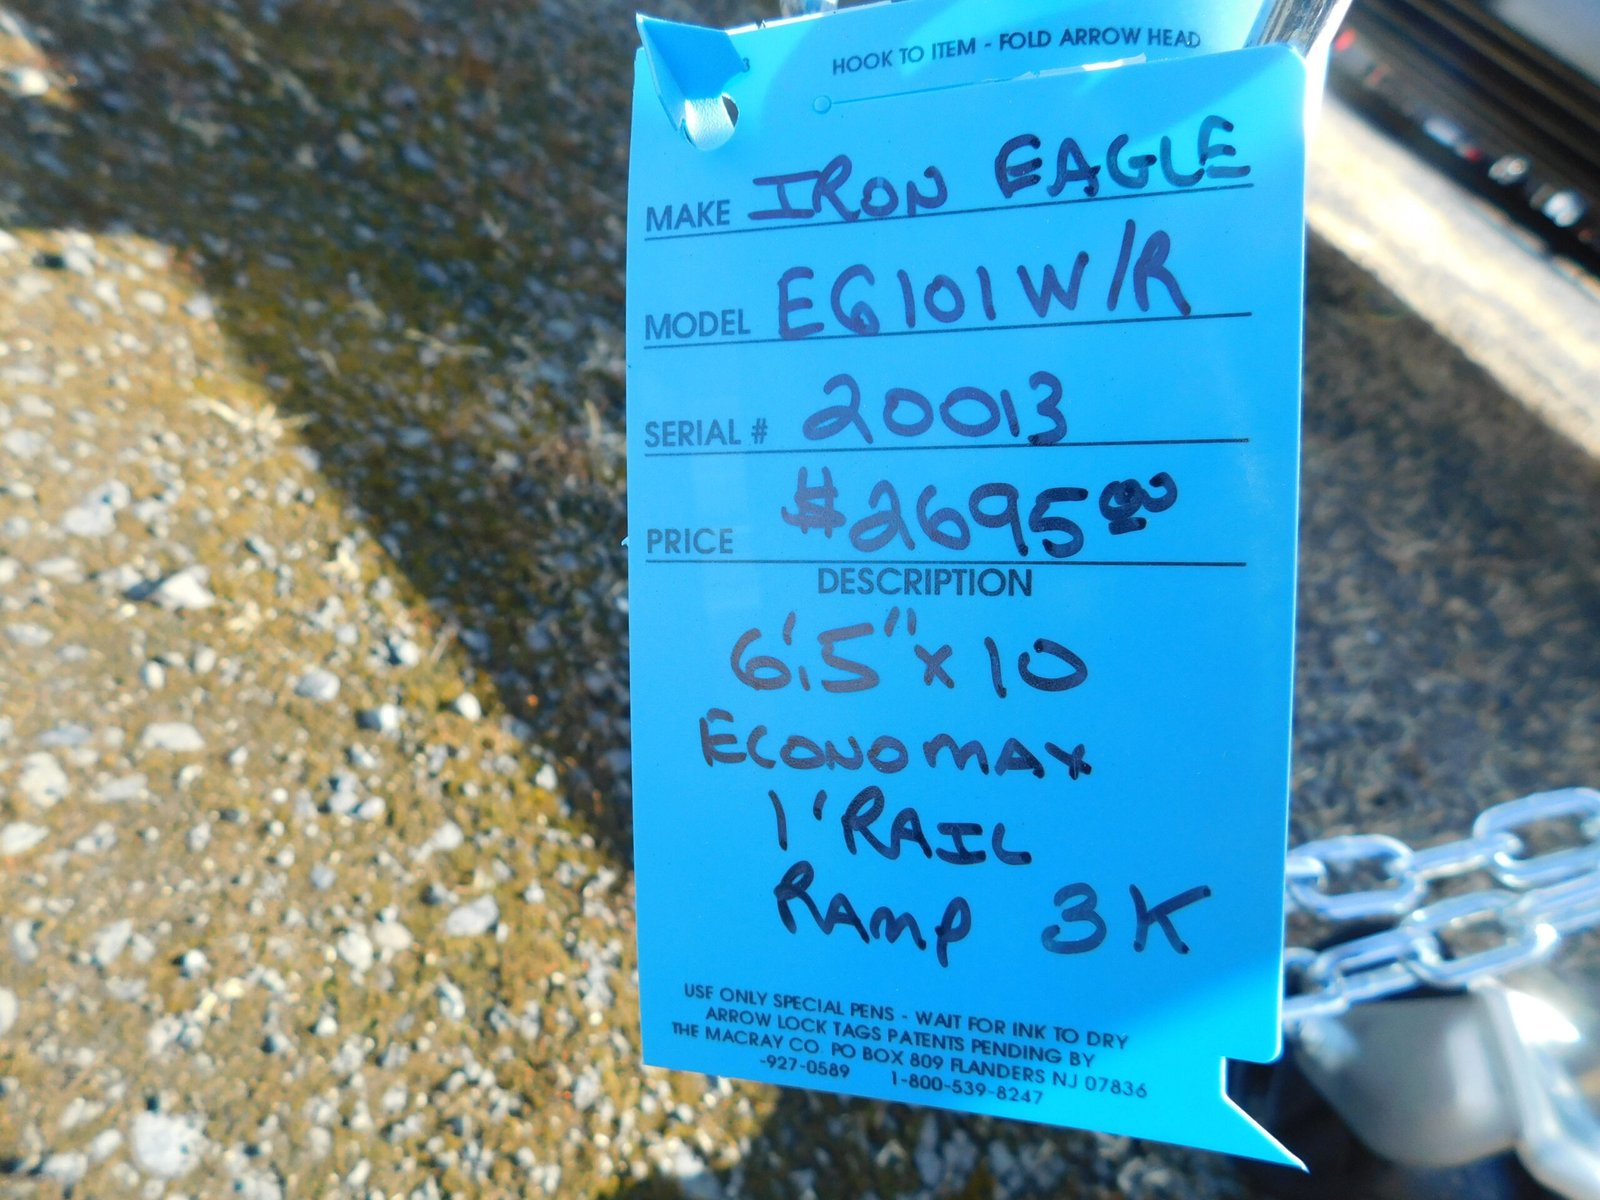 3 HOOK TO ITEM - FOLD ARROW HEAD
MAKE IRON EAGLE
MODEL E6101W/R
SERIAL # 20013
PRICE $2695.00
DESCRIPTION
6',5" x 10
ECONOMAX
1' RAIL
RAMP 3K
USE ONLY SPECIAL PENS - WAIT FOR INK TO DRY
ARROW LOCK TAGS PATENTS PENDING BY
THE MACRAY CO. PO BOX 809 FLANDERS NJ 07836
-927-0589 1-800-539-8247